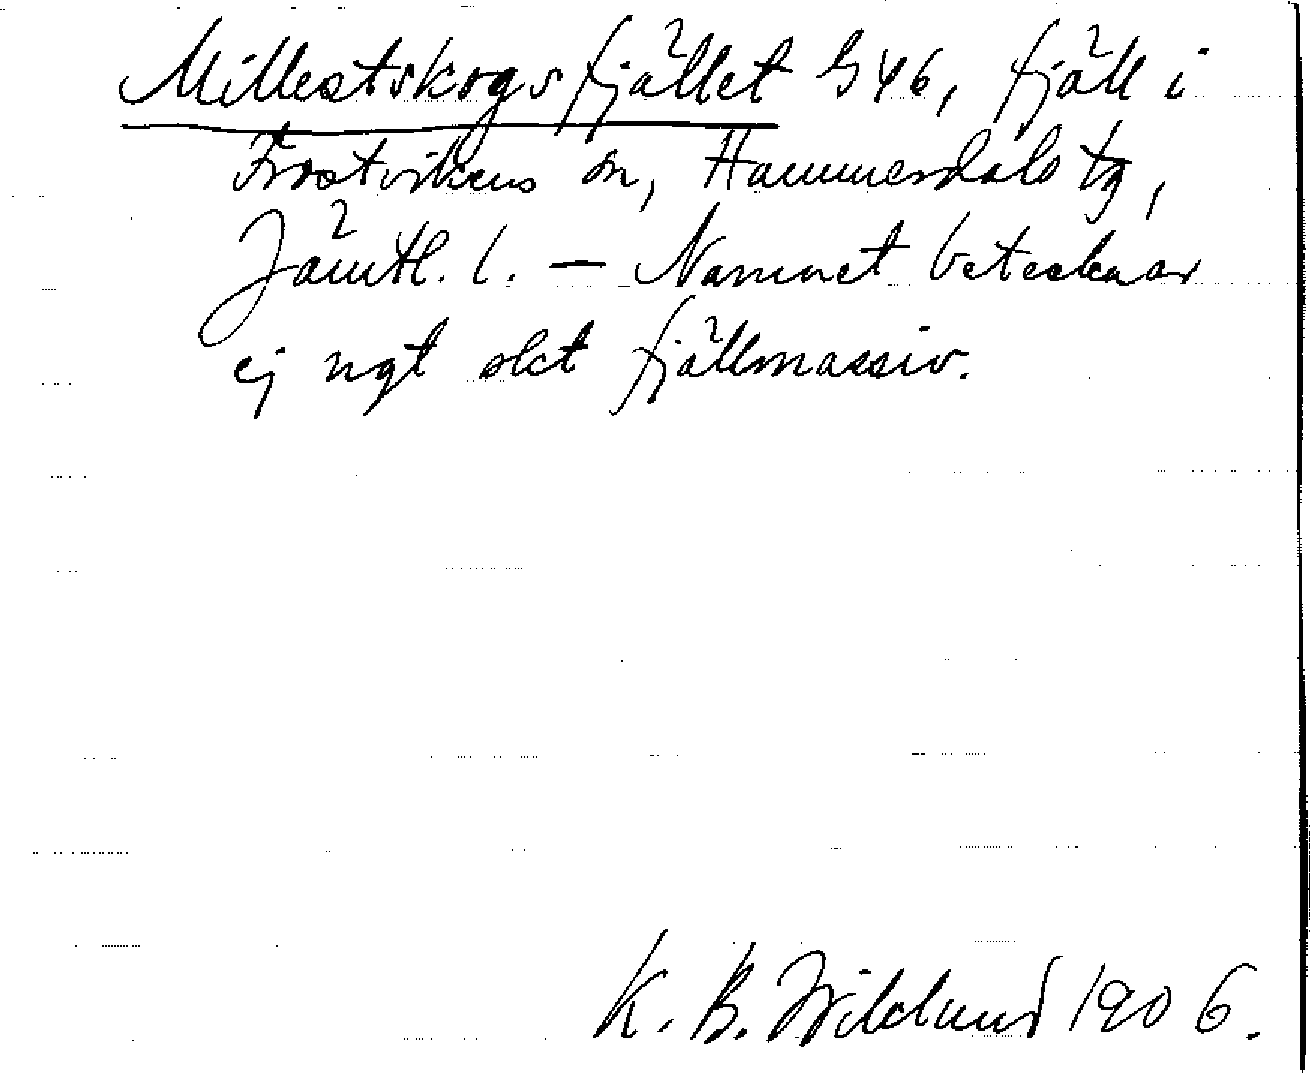 Millestskogsfjället G46, fjäll i
Frostvikens sn, Hammerdals tg,
Jämtl. l. — Namnet betecknar
ej ngt skt fjällmassiv.
K. B. Wiklund 1906.